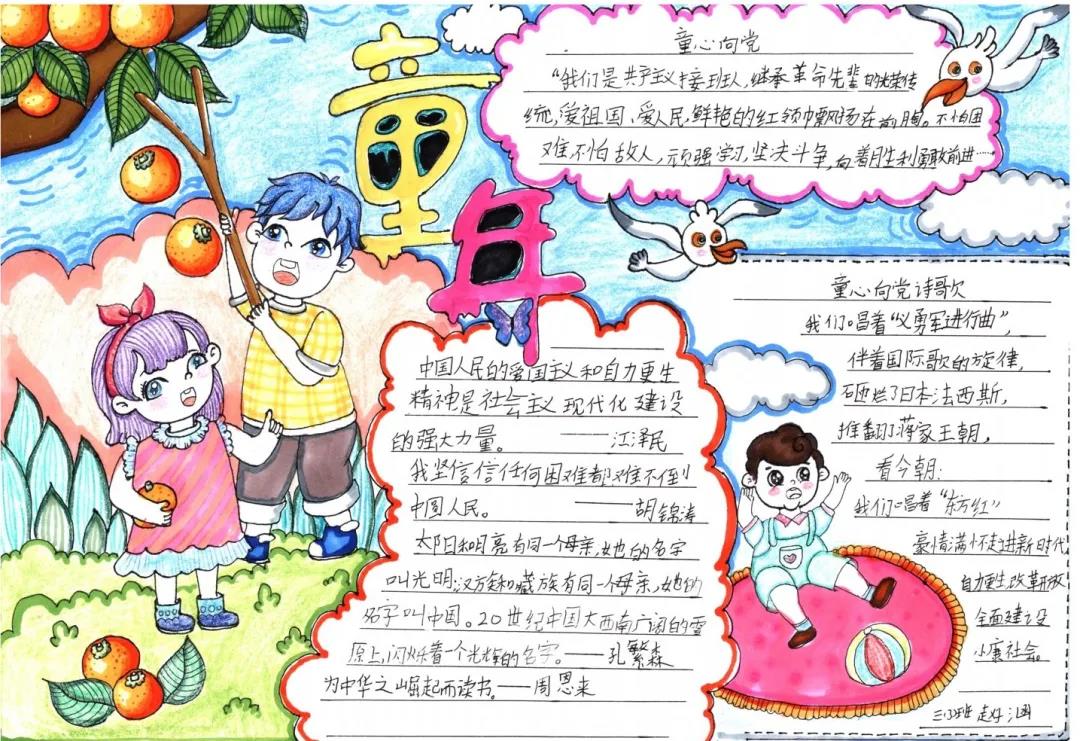 童年
童心向党
“我们是共产主义接班人,继承革命先辈的光荣传
统,爱祖国、爱人民,鲜艳的红领巾飘扬在前胸。不怕困
难不怕敌人,顽强学习,坚决斗争,向着胜利勇敢前进……
童心向党诗歌
我们唱着“义勇军进行曲”,
伴着国际歌的旋律,
砸烂了日本法西斯,
推翻了蒋家王朝,
看今朝:
我们唱着“东方红”
豪情满怀走进新时代
自力更生,改革开放
全面建设
小康社会。
中国人民的爱国主义和自力更生
精神是社会主义现代化建设
的强大力量。——江泽民
我坚信信任何困难都难不倒
中国人民。——胡锦涛
太阳和月亮有同一个母亲,她的名字
叫光明,汉族和藏族有同一个母亲,她的
名字叫中国。20世纪中国大西南广阔的雪
原上,闪烁着一个光辉的名字。——孔繁森
为中华之崛起而读书。——周恩来